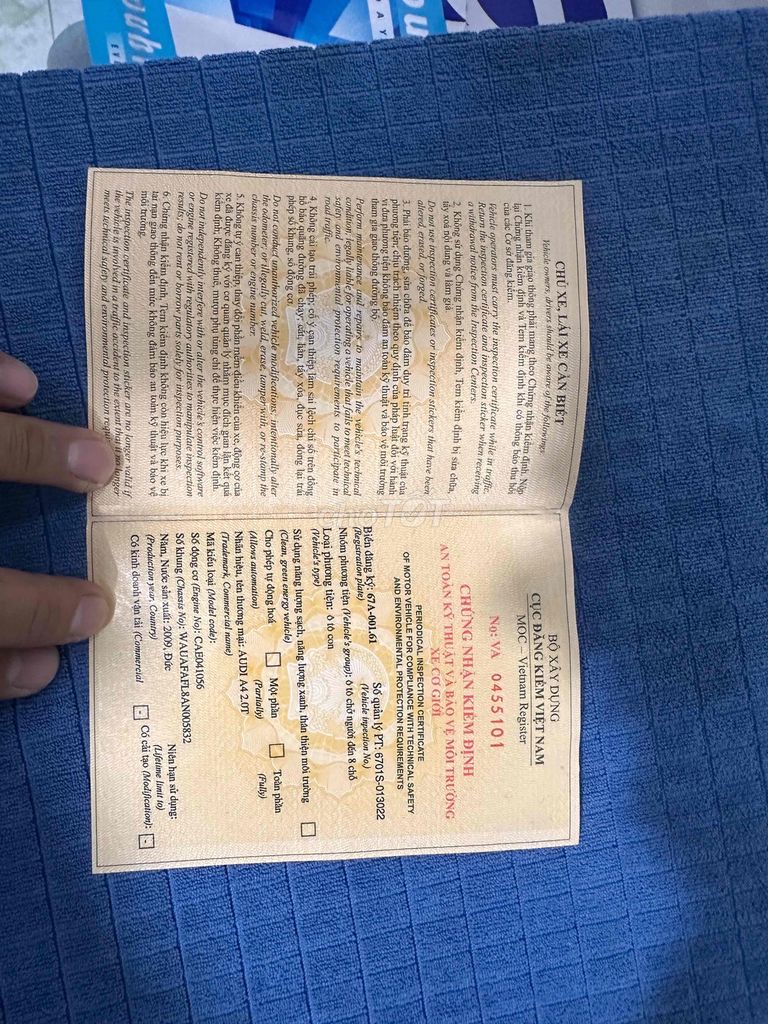 CHỦ XE, LÁI XE CẦN BIẾT
Vehicle owners, drivers should be aware of the followings:
1. Khi tham gia giao thông phải mang theo Chứng nhận kiểm định; Nộp
lại Chứng nhận kiểm định và Tem kiểm định khi có thông báo thu hồi
của các Cơ sở đăng kiểm.
Vehicle operators must carry the inspection certificate while in traffic.
Return the inspection certificate and inspection sticker when receiving
a withdrawal notice from the Inspection Centers.
2. Không sử dụng Chứng nhận kiểm định, Tem kiểm định bị sửa chữa,
tẩy xoá nội dung và làm giả.
Do not use inspection certificates or inspection stickers that have been
altered, erased, or forged.
3. Phải bảo dưỡng, sửa chữa để bảo đảm duy trì tình trạng kỹ thuật của
phương tiện; chịu trách nhiệm theo quy định của pháp luật đối với hành
vi đưa phương tiện không bảo đảm an toàn kỹ thuật và bảo vệ môi trường
tham gia giao thông đường bộ.
Perform maintenance and repairs to maintain the vehicle's technical
condition, legally liable for operating a vehicle that fails to meet technical
safety and environmental protection requirements to participate in
road traffic.
4. Không cải tạo trái phép; cố ý can thiệp làm sai lệch chỉ số trên đồng
hồ báo quãng đường đã chạy; cắt, hàn, tẩy xóa, đục sửa, đóng lại trái
phép số khung, số động cơ.
Do not conduct unauthorized vehicle modifications; intentionally alter
the odometer; or illegally cut, weld, erase, tamper with, or re-stamp the
chassis number or engine number.
5. Không tự ý can thiệp, thay đổi phần mềm điều khiển của xe, động cơ của
xe đã được đăng ký với cơ quan quản lý nhằm mục đích gian lận kết quả
kiểm định; Không thuê, mượn phụ tùng chỉ để thực hiện việc kiểm định.
Do not independently interfere with or alter the vehicle's control software
or engine registered with regulatory authorities to manipulate inspection
results; do not rent or borrow parts solely for inspection purposes.
6. Chứng nhận kiểm định, Tem kiểm định không còn hiệu lực khi xe bị
tai nạn giao thông đến mức không đảm bảo an toàn kỹ thuật và bảo vệ
môi trường.
The inspection certificate and inspection sticker are no longer valid if
the vehicle is involved in a traffic accident to the extent that it no longer
meets technical safety and environmental protection
BỘ XÂY DỰNG
CỤC ĐĂNG KIỂM VIỆT NAM
MOC – Vietnam Register
No: VA 0455101
CHỨNG NHẬN KIỂM ĐỊNH
AN TOÀN KỸ THUẬT VÀ BẢO VỆ MÔI TRƯỜNG
XE CƠ GIỚI
PERIODICAL INSPECTION CERTIFICATE
OF MOTOR VEHICLE FOR COMPLIANCE WITH TECHNICAL SAFETY
AND ENVIRONMENTAL PROTECTION REQUIREMENTS
Biển đăng ký: 67A-001.61 Số quản lý PT: 6701S-013022
(Registration plate) (Vehicle inpection No.)
Nhóm phương tiện (Vehicle's group): ô tô chở người đến 8 chỗ
Loại phương tiện: ô tô con
(Vehicle's type)
Sử dụng năng lượng sạch, năng lượng xanh, thân thiện môi trường
(Clean, green energy vehicle)
Cho phép tự động hoá Một phần Toàn phần
(Allows automation) (Partially) (Fully)
Nhãn hiệu, tên thương mại: AUDI A4 2.0T
(Trademark, Commercial name)
Mã kiểu loại (Model code):
Số động cơ (Engine No): CAE041056
Số khung (Chassis No): WAUAFAFL8AN005832
Năm, Nước sản xuất: 2009, Đức Niên hạn sử dụng:
(Production year, Country) (Lifetime limit to)
Có kinh doanh vận tải (Commercial - Có cải tạo (Modification): -
CHỢ TỐT